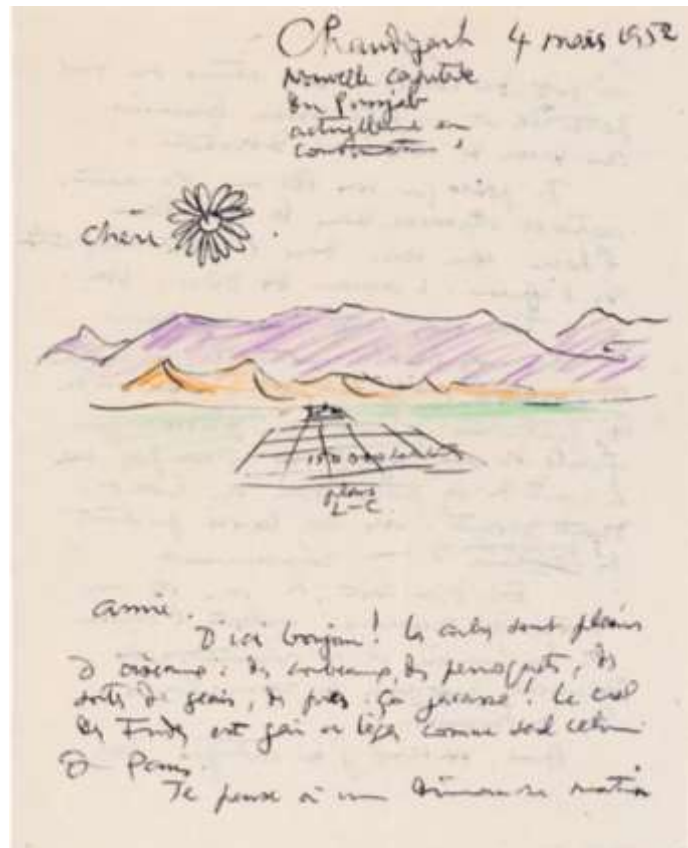 Chandigarh 4 mars 1952
Nouvelle capitale
du Punjab
actuellement en
construction.
Chère
plans
L-C
amie.
D'ici bonjour! Les arbres sont pleins
d'oiseaux: des corbeaux, des perroquets, des
sortes de geais, des pies. Ça jacasse! Le ciel
des Indes est gai et léger comme seul celui
de Paris.
Je pense à un dimanche matin